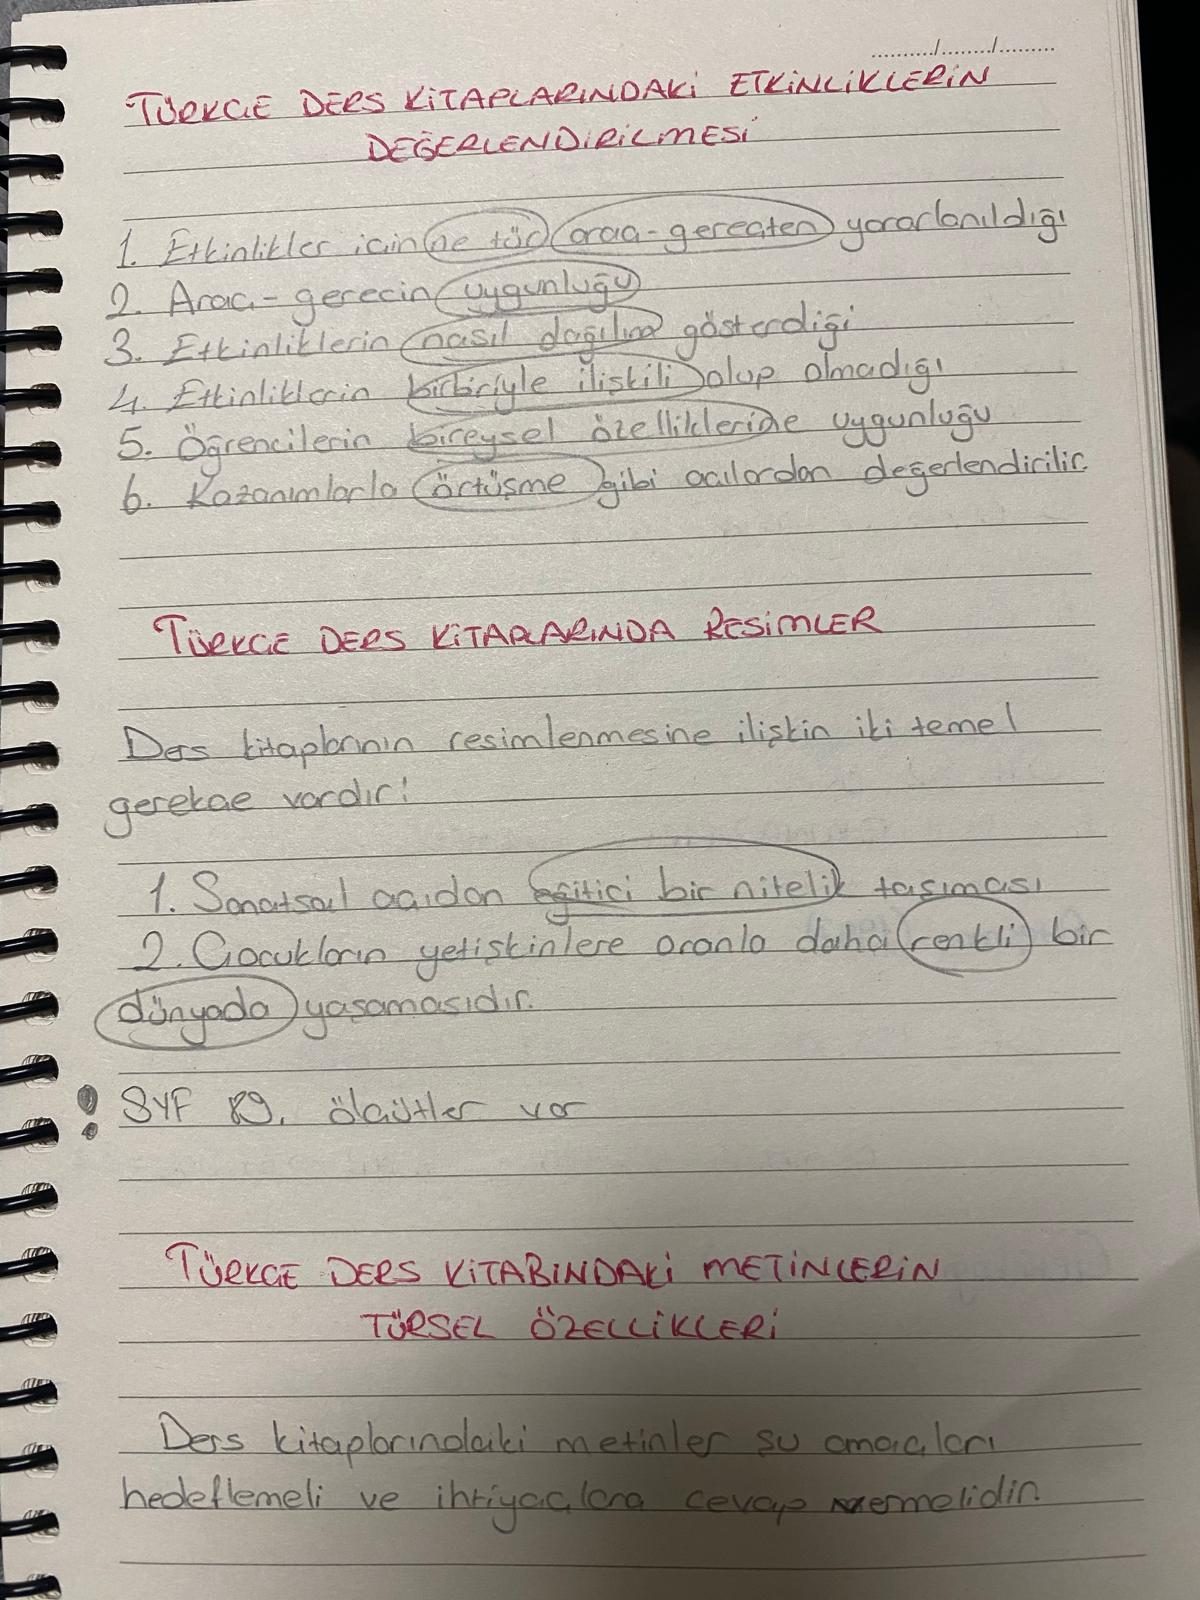 ........../......../.........
TÜRKÇE DERS KİTAPLARINDAKİ ETKİNLİKLERİN
DEĞERLENDİRİLMESİ
1. Etkinlikler için ne tür araç-gereçten yararlanıldığı
2. Araç-gerecin uygunluğu
3. Etkinliklerin nasıl dağılım gösterdiği
4. Etkinliklerin birbiriyle ilişkili olup olmadığı
5. Öğrencilerin bireysel özelliklerine uygunluğu
6. Kazanımlarla örtüşme gibi açılardan değerlendirilir.
TÜRKÇE DERS KİTAPLARINDA RESİMLER
Ders kitaplarının resimlenmesine ilişkin iki temel
gerekçe vardır:
1. Sanatsal açıdan eğitici bir nitelik taşıması
2. Çocukların yetişkinlere oranla daha renkli bir
dünyada yaşamasıdır.
! SYF 89. ölçütler var
TÜRKÇE DERS KİTABINDAKİ METİNLERİN
TÜRSEL ÖZELLİKLERİ
Ders kitaplarındaki metinler şu amaçları
hedeflemeli ve ihtiyaçlara cevap vermelidir.